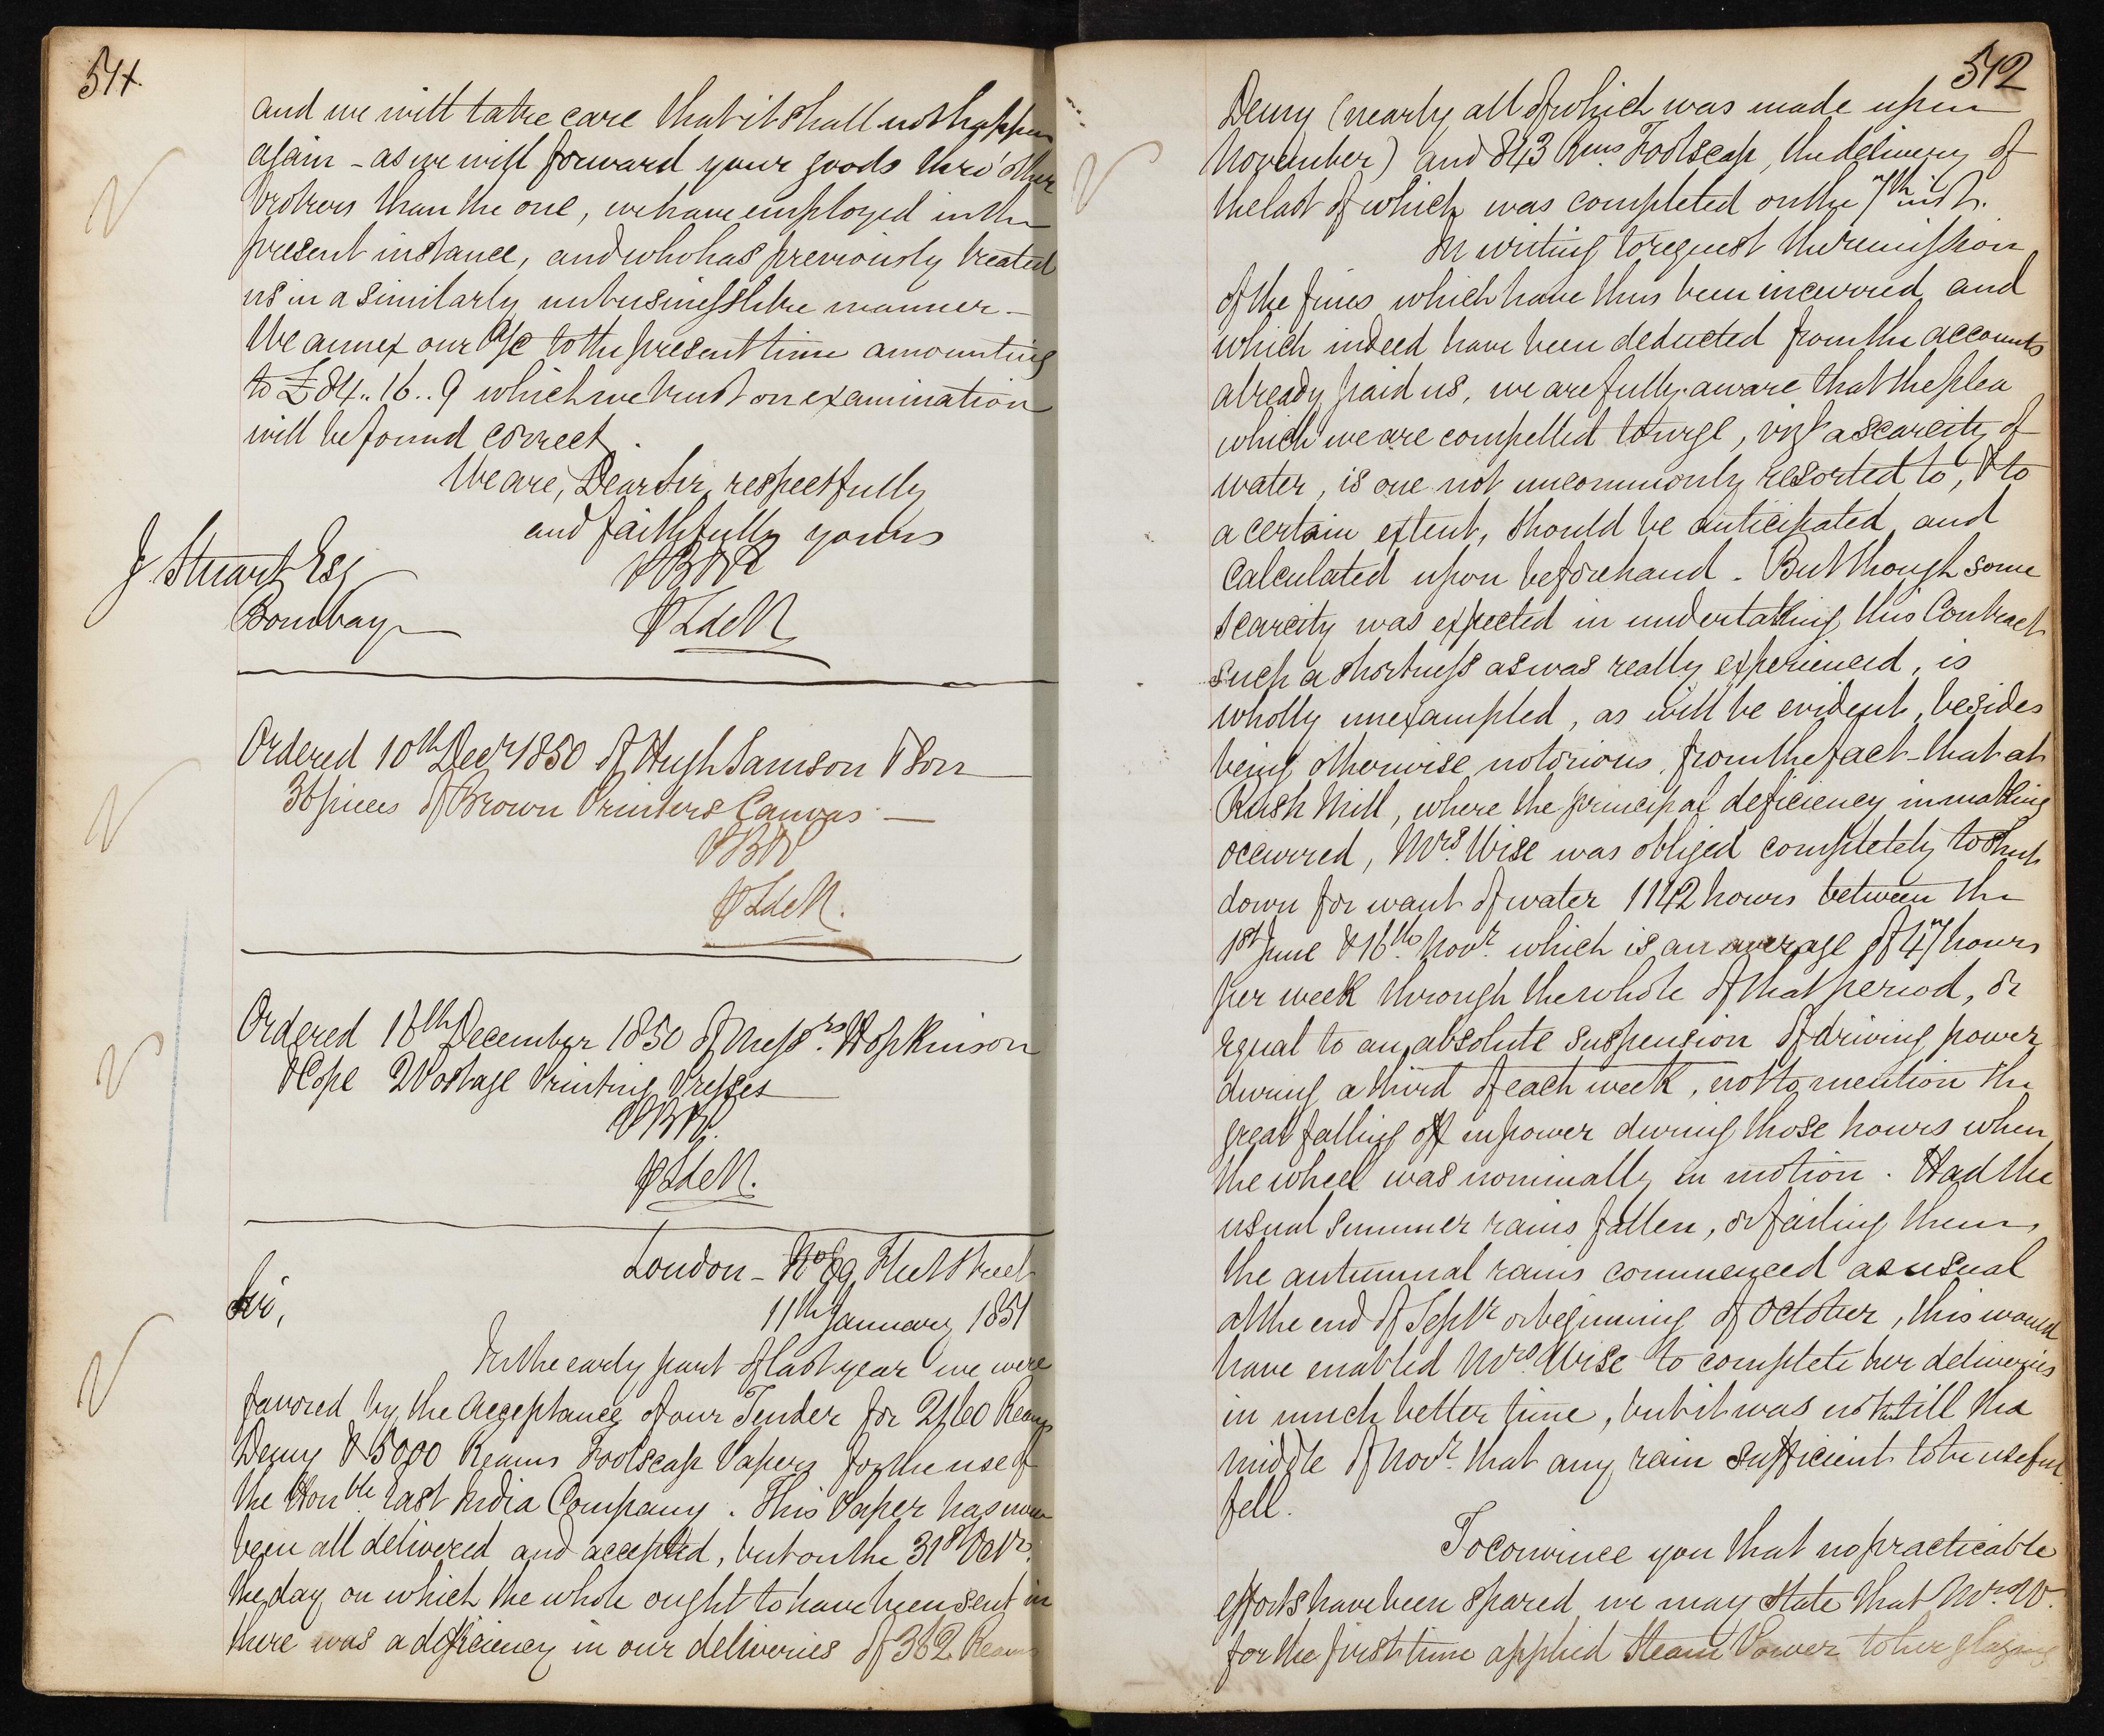 511.
and we will take care that it shall not happen
again - as we will forward your goods thro' other
brokers than the one, we have employed in the
present instance, and who has previously treated
us in a similarly unbusinesslike manner -
We annex our a/c to the present time amounting
to £84..16..9 which we trust on examination
will be found correct.
We are, Dear Sir, respectfully
and faithfully yours
J Stuart Esq
Bombay
PLdeR
Ordered 10th Decr 1850 of Hugh Samson & Son
36 pieces of Brown Printers Canvas -
PLdeR.
Ordered 16th December 1850 of Messrs. Hopkinson
& Cope 2 Postage Printing Presses
PLdeR.
London - No 69 Fleet Street
11th January 1851
Sir,
In the early part of last year we were
favored by the acceptance of our Tender for 2460 Reams
Demy & 5000 Reams Foolscap Papers for the use of
the Honble East India Company. This Paper has now
been all delivered and accepted, but on the 31st Octr.
the day on which the whole ought to have been sent in
there was a deficiency in our deliveries of 362 Reams
512
Demy (nearly all of which was made up in
November) and 843 Rms Foolscap, the delivery of
the last of which was completed on the 7th inst.
In writing to request the remission
of the fines which have thus been incurred and
which indeed have been deducted from the accounts
already paid us, we are fully aware that the plea
which we are compelled to urge, vizt a scarcity of
water, is one not uncommonly resorted to, & to
a certain extent, should be anticipated and
calculated upon beforehand. But though some
scarcity was expected in undertaking this Contract
such a shortness as was really experienced, is
wholly unexampled, as will be evident, besides
being otherwise notorious, from the fact - that at
Rush Mill, where the principal deficiency in making
occurred, Mrs. Wise was obliged completely to shut
down for want of water 1142 hours between the
1st June & 16th Novr. which is an average of 47 hours
per week through the whole of that period, or
equal to an absolute suspension of driving power
during a third of each week, not to mention the
great falling off in power during those hours when
the wheel was nominally in motion. Had the
usual summer rains fallen, or failing them,
the autumnal rains commenced as usual
at the end of Septr or beginning of October, this would
have enabled Mrs Wise to complete her deliveries
in much better time, but it was not till the
middle of Novr. that any rain sufficient to be useful
fell.
To convince you that no practicable
efforts have been spared we may state that Mrs. W.
for the first time applied Steam Power to her glazing